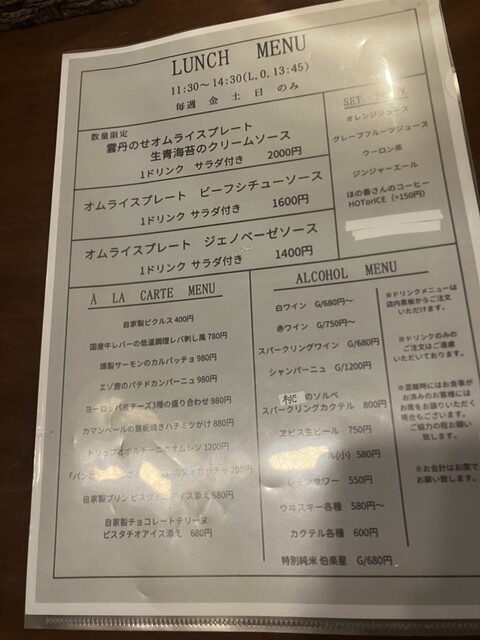 LUNCH MENU
11:30～14:30(L.O.13:45)
毎週 金 土 日 のみ
数量限定
雲丹のせオムライスプレート
生青海苔のクリームソース
1ドリンク サラダ付き 2000円
オムライスプレート ビーフシチューソース
1ドリンク サラダ付き 1600円
オムライスプレート ジェノベーゼソース
1ドリンク サラダ付き 1400円
SET
オレンジジュース
グレープフルーツジュース
ウーロン茶
ジンジャーエール
ほの香さんのコーヒー
HOTorICE (+150円)
À LA CARTE MENU
自家製ピクルス 400円
国産牛レバーの低温調理レバ刺し風 780円
燻製サーモンのカルパッチョ 980円
エゾ鹿のパテドカンパーニュ 980円
ヨーロッパ産チーズ3種の盛り合わせ 980円
カマンベールの鉄板焼きハチミツがけ 880円
トリュフとポルチーニのオムレツ 1200円
200円
自家製プリン ピスタチオアイス添え 680円
自家製チョコレートテリーヌ
ピスタチオアイス添え 680円
ALCOHOL MENU
白ワイン G/680円～
赤ワイン G/750円～
スパークリングワイン G/680円
シャンパーニュ G/1200円
桃のソルベ
スパークリングカクテル 800円
ヱビス生ビール 750円
ル(小) 580円
レモンサワー 550円
ウヰスキー各種 580円～
カクテル各種 600円
特別純米 伯楽星 G/680円
※ドリンクメニューは
店内黒板からご注文
いただけます。
※ドリンクのみの
ご注文はご遠慮
いただいております。
※混雑時にはお食事が
お済みのお客様には
お席をお譲りいただく
場合もございます。
ご協力の程お願い
致します。
※お会計はお席で
お願い致します。